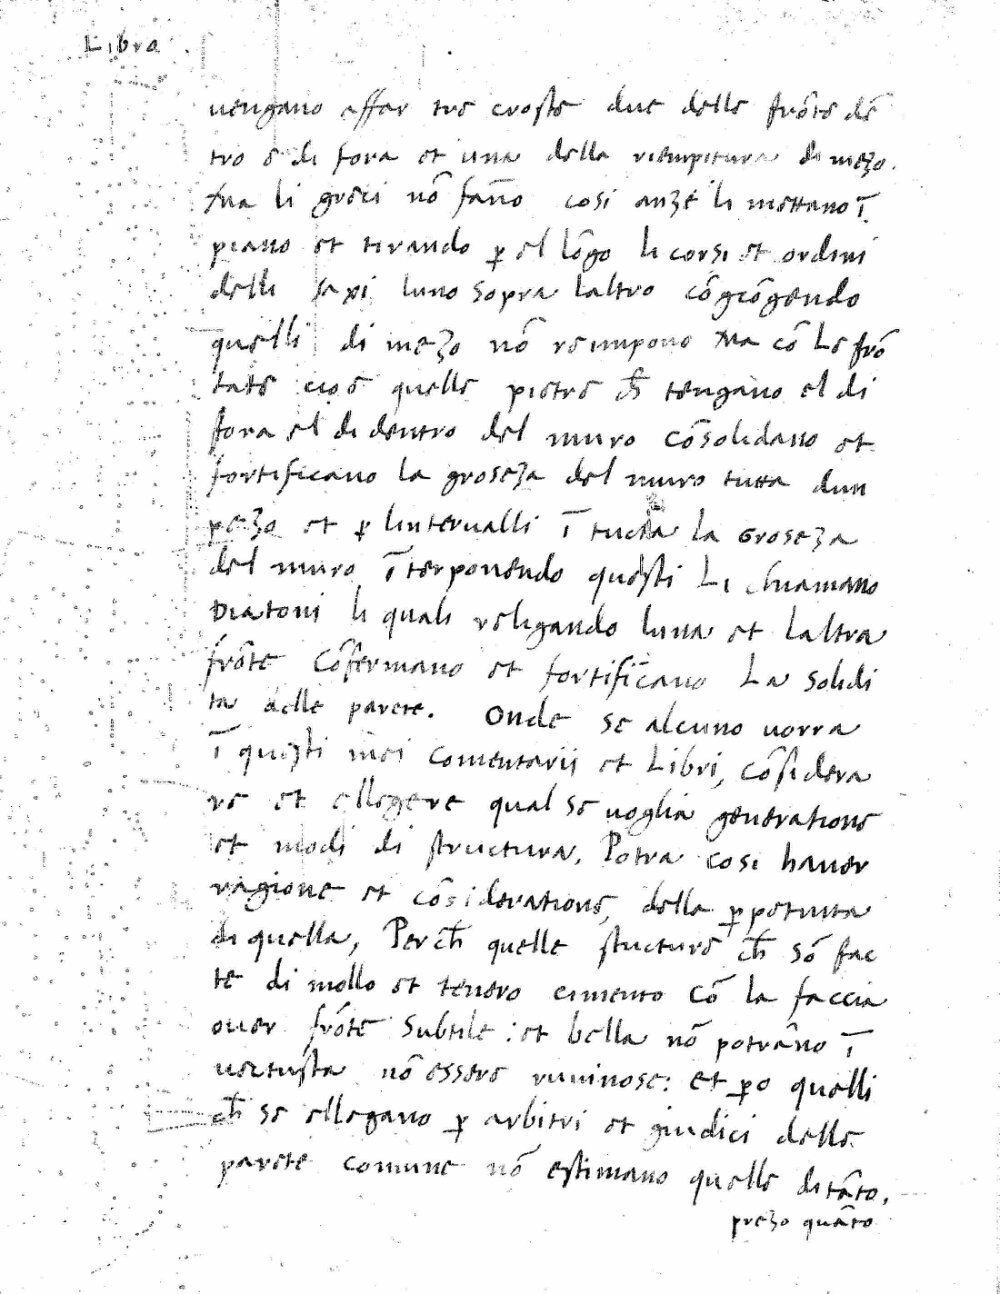 Libra
vengano affar tre croste due delle frõte dẽ
tro e di fora et una della riempitura di mezo.
Ma li greci nõ fan̄o cosi anze li mettano ĩ
piano et tirando ꝑ el lõgo li corsi et ordini
delli saxi luno sopra laltro cõgiõgendo
quelli di mezo nõ reimpono Ma cõ Le frõ
tate cioe quelle pietre ch̃ tengano el di
fora el di dentro del muro cõsolidano et
fortificano la groseza del muro tutta dun
pezo et ꝑ lintervalli ĩ tucta la Groseza
del muro ĩterponendo questi Li chiamano
Diatoni li quali religando luna et Laltra
frõte Cõfermano et fortificãno La solidi
ta delle parete. Onde se alcuno vorra
ĩ questi mei Comentarii et Libri, cõsidera
re et ellegere qual se voglia generatione
et modi di structura, Potra cosi haver
ragione et cõsideratione, della ꝑpetuita
di quella, Perch̃ quelle structure ch̃ sõ fac
te di mollo et tenero cimento Cõ la faccia
over frõte Subtile : et bella nõ potrãno ĩ
vetusta nõ essere ruvinose: et ꝑo quelli
ch̃ se ellegano ꝑ arbitri et giudici delle
parete comune nõ estimano quelle di tãto,
prezo quãto